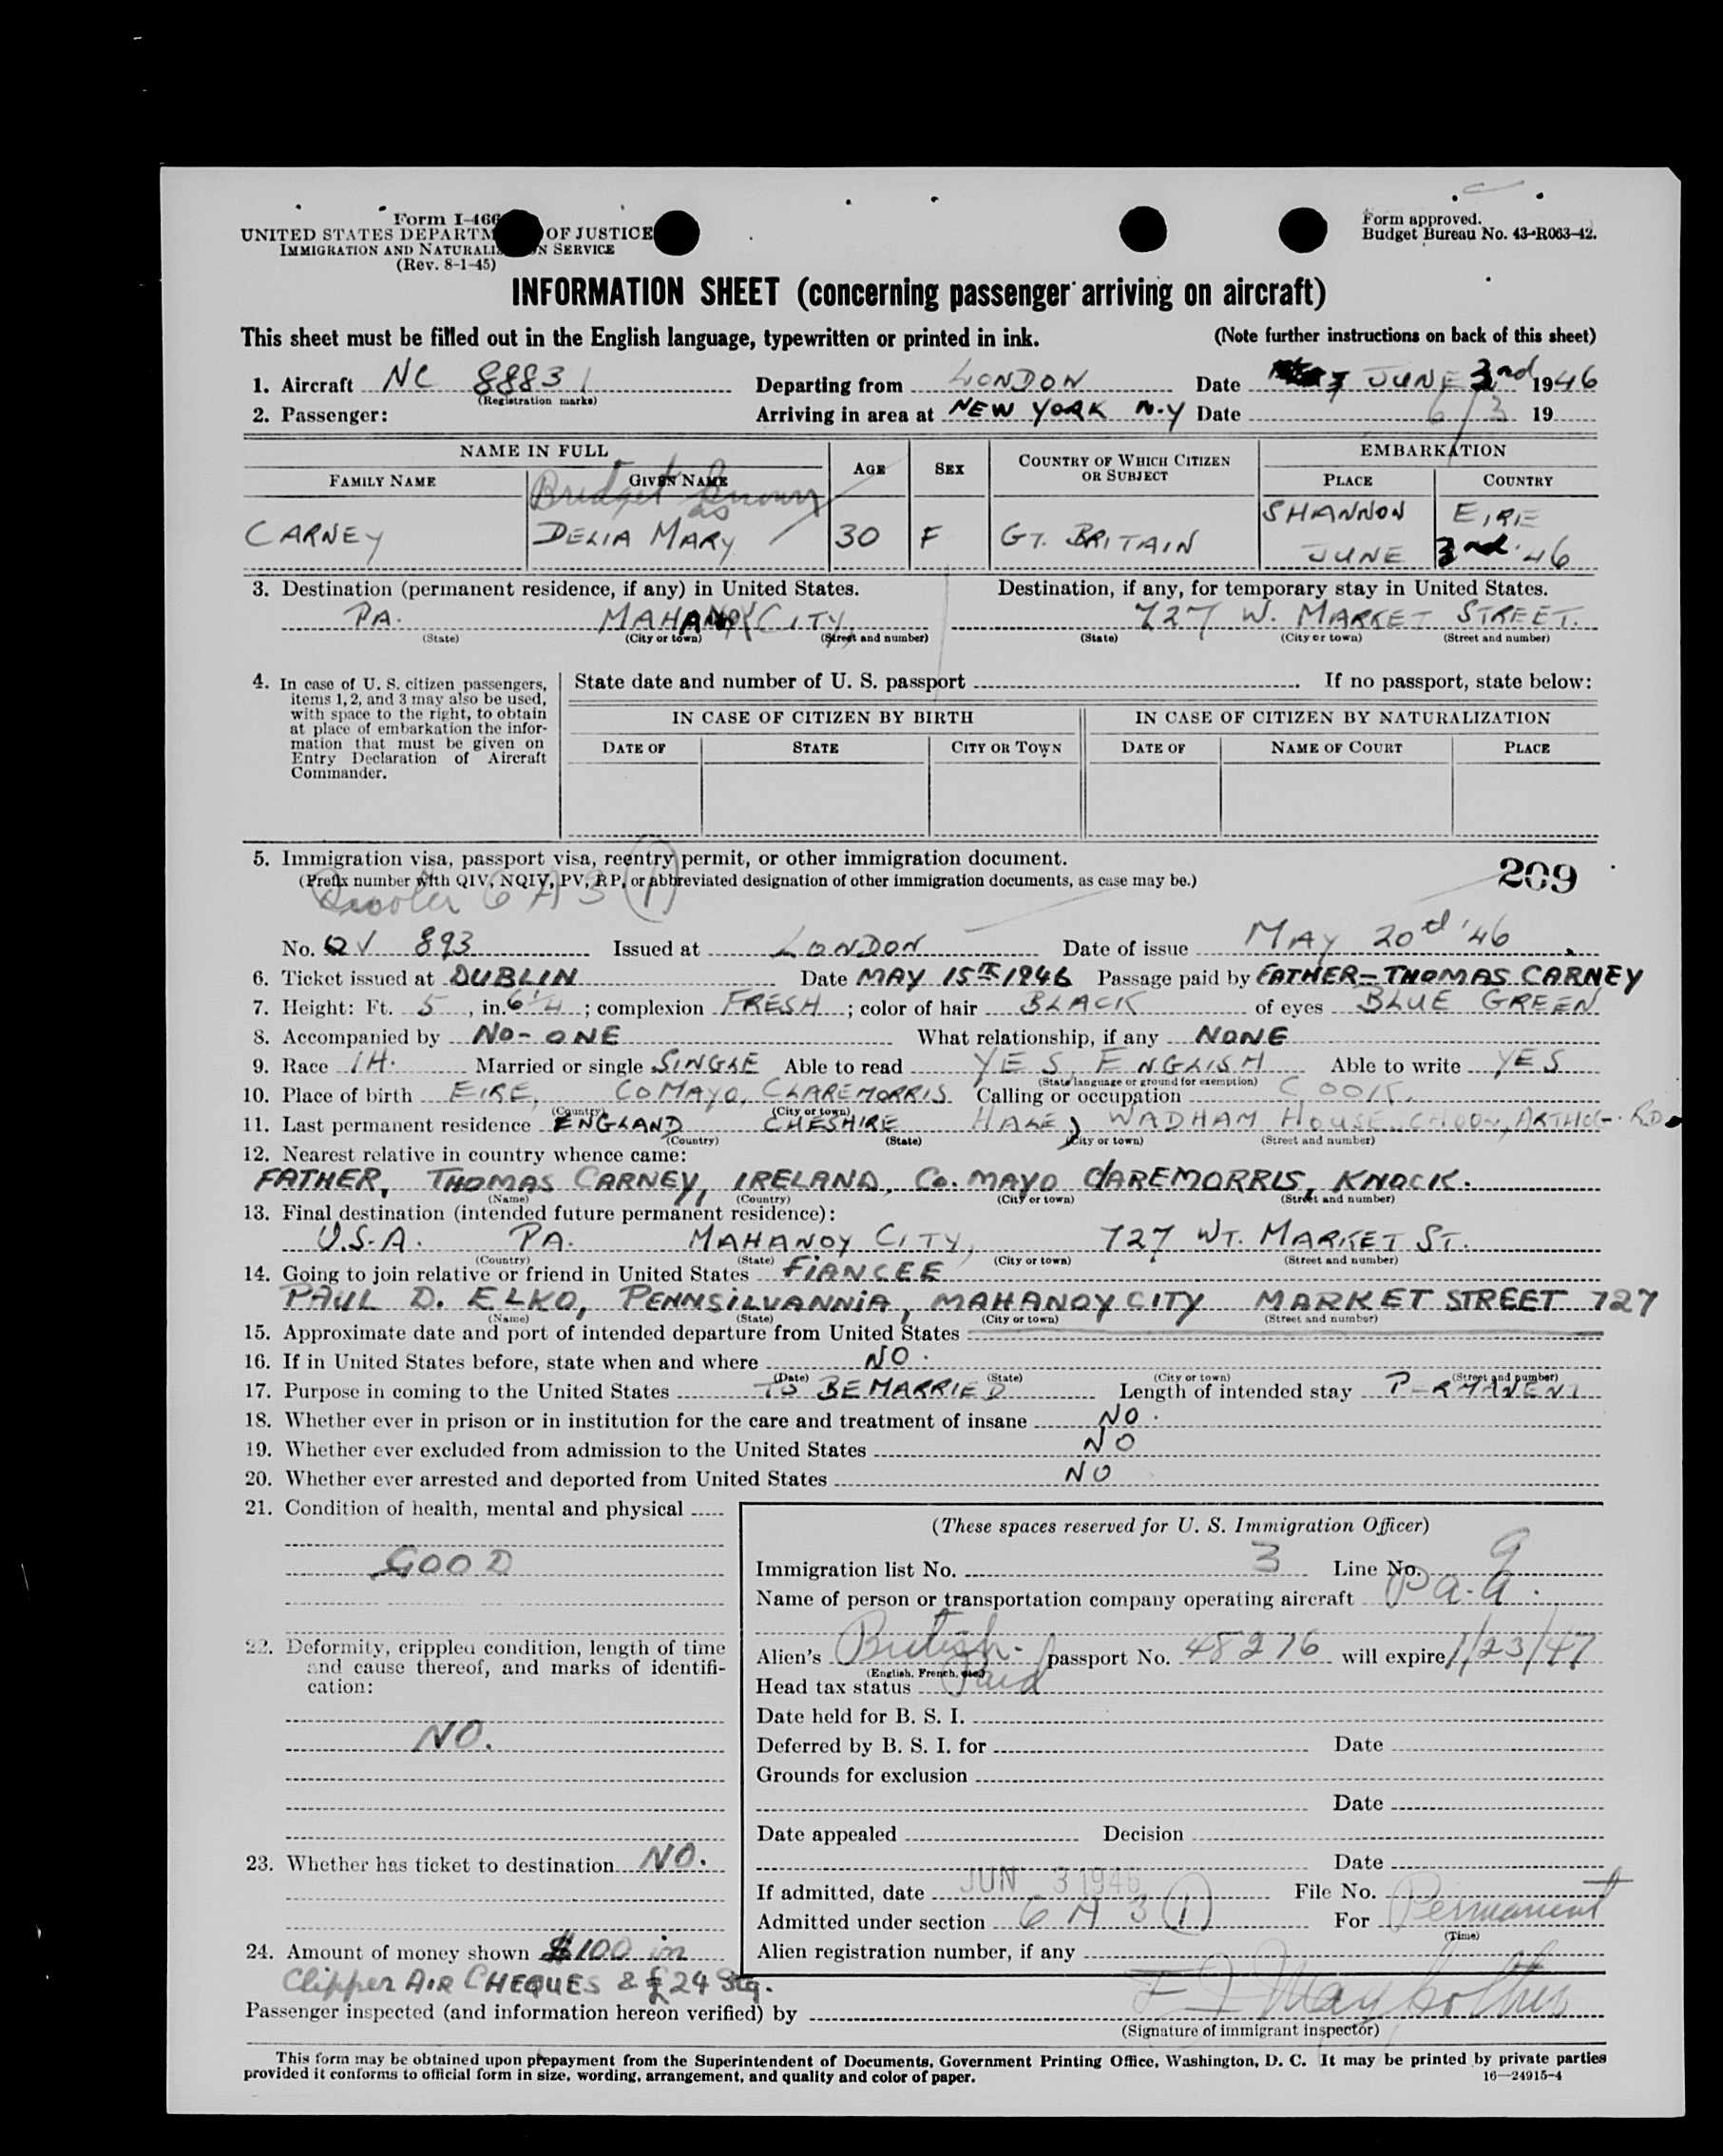 Form I-466
UNITED STATES DEPARTM OF JUSTICE
IMMIGRATION AND NATURALI N SERVICE
(Rev. 8-1-45)
Form approved.
Budget Bureau No. 43-R063-42.
INFORMATION SHEET (concerning passenger arriving on aircraft)
This sheet must be filled out in the English language, typewritten or printed in ink. (Note further instructions on back of this sheet)
1. Aircraft NC 88831 Departing from LONDON Date JUNE 3rd 1946
(Registration marks)
2. Passenger: Arriving in area at NEW YORK N.Y Date 6/3 19
NAME IN FULL AGE SEX COUNTRY OF WHICH CITIZEN OR SUBJECT EMBARKATION
FAMILY NAME GIVEN NAME PLACE COUNTRY
Bridget known
as
SHANNON EIRE
CARNEY DELIA MARY 30 F GT. BRITAIN
JUNE 3rd '46
3. Destination (permanent residence, if any) in United States. Destination, if any, for temporary stay in United States.
PA. MAHANOY CITY, 727 W. MARKET STREET.
(State) (City or town) (Street and number) (State) (City or town) (Street and number)
4. In case of U. S. citizen passengers,
items 1, 2, and 3 may also be used,
with space to the right, to obtain
at place of embarkation the infor-
mation that must be given on
Entry Declaration of Aircraft
Commander.
State date and number of U. S. passport . If no passport, state below:
IN CASE OF CITIZEN BY BIRTH IN CASE OF CITIZEN BY NATURALIZATION
DATE OF STATE CITY OR TOWN DATE OF NAME OF COURT PLACE
5. Immigration visa, passport visa, reentry permit, or other immigration document.
(Prefix number with QIV, NQIV, PV, RP, or abbreviated designation of other immigration documents, as case may be.)
209
6 A 3 (1)
No. QV 893 Issued at LONDON Date of issue MAY 20td '46
6. Ticket issued at DUBLIN Date MAY 15TH 1946 Passage paid by FATHER - THOMAS CARNEY
7. Height: Ft. 5, in. 6 1/4; complexion FRESH; color of hair BLACK of eyes BLUE GREEN
8. Accompanied by NO-ONE What relationship, if any NONE
9. Race IH. Married or single SINGLE Able to read YES, ENGLISH Able to write YES
(State language or ground for exemption)
10. Place of birth EIRE, CO MAYO, CLAREMORRIS Calling or occupation COOK.
(Country) (City or town)
11. Last permanent residence ENGLAND CHESHIRE HALE, WADHAM HOUSE RD.
(Country) (State) (City or town) (Street and number)
12. Nearest relative in country whence came:
FATHER, THOMAS CARNEY, IRELAND, Co. MAYO CLAREMORRIS, KNOCK.
(Name) (Country) (City or town) (Street and number)
13. Final destination (intended future permanent residence):
U.S.A. PA. MAHANOY CITY, 727 WT. MARKET ST.
(Country) (State) (City or town) (Street and number)
14. Going to join relative or friend in United States FIANCEE
PAUL D. ELKO, PENNSILVANNIA, MAHANOY CITY MARKET STREET 727
(Name) (State) (City or town) (Street and number)
15. Approximate date and port of intended departure from United States
16. If in United States before, state when and where NO.
(Date) (State) (City or town) (Street and number)
17. Purpose in coming to the United States TO BE MARRIED Length of intended stay PERMANENT
18. Whether ever in prison or in institution for the care and treatment of insane NO.
19. Whether ever excluded from admission to the United States NO
20. Whether ever arrested and deported from United States NO
21. Condition of health, mental and physical
GOOD
22. Deformity, crippled condition, length of time
and cause thereof, and marks of identifi-
cation:
NO.
23. Whether has ticket to destination NO.
24. Amount of money shown $100 in
Clipper AIR CHEQUES & £24 Stg.
(These spaces reserved for U. S. Immigration Officer)
Immigration list No. 3 Line No. 9
Name of person or transportation company operating aircraft P.a.a.
Alien's British passport No. 48276 will expire 1/23/47
(English, French, etc.)
Head tax status Paid
Date held for B. S. I.
Deferred by B. S. I. for Date
Grounds for exclusion
Date
Date appealed Decision
Date
If admitted, date JUN 3 1946 File No.
Admitted under section 6 A 3 (1) For Permanent
(Time)
Alien registration number, if any
Passenger inspected (and information hereon verified) by
(Signature of immigrant inspector)
This form may be obtained upon prepayment from the Superintendent of Documents, Government Printing Office, Washington, D. C. It may be printed by private parties
provided it conforms to official form in size, wording, arrangement, and quality and color of paper. 16—24915-4